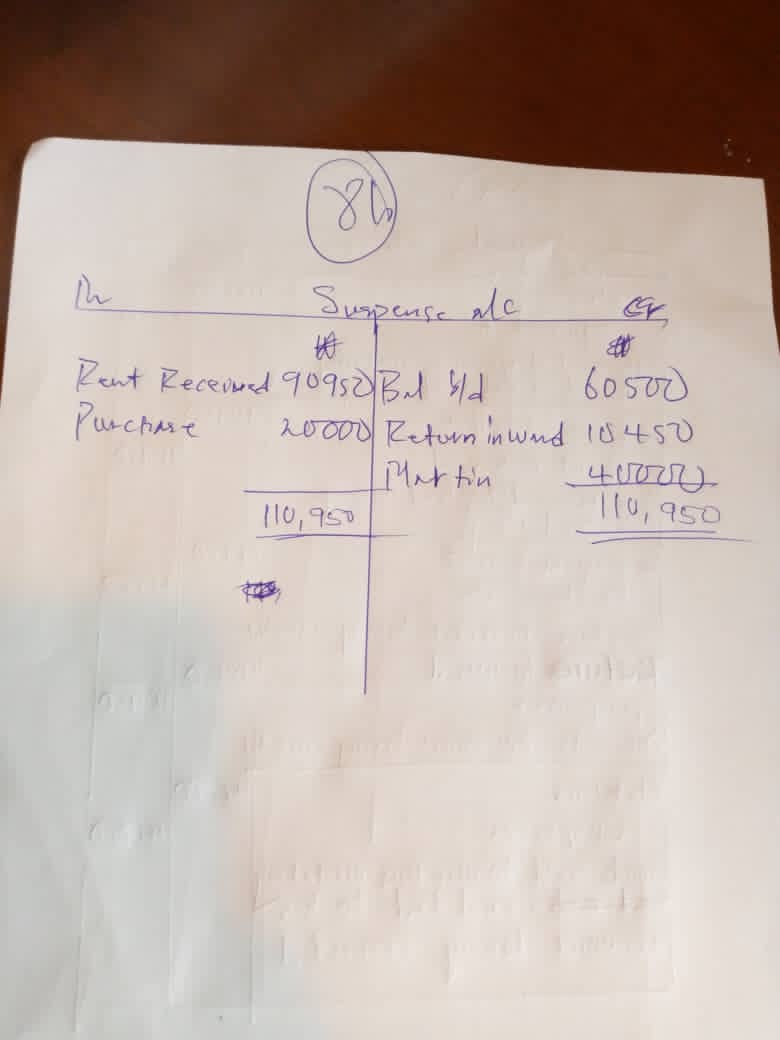 8b
Dr Suspense a/c Cr
₦ ₦
Rent Received 90950 Bal b/d 60500
Purchase 20000 Return inward 10450
Martin 40000
110,950 110,950